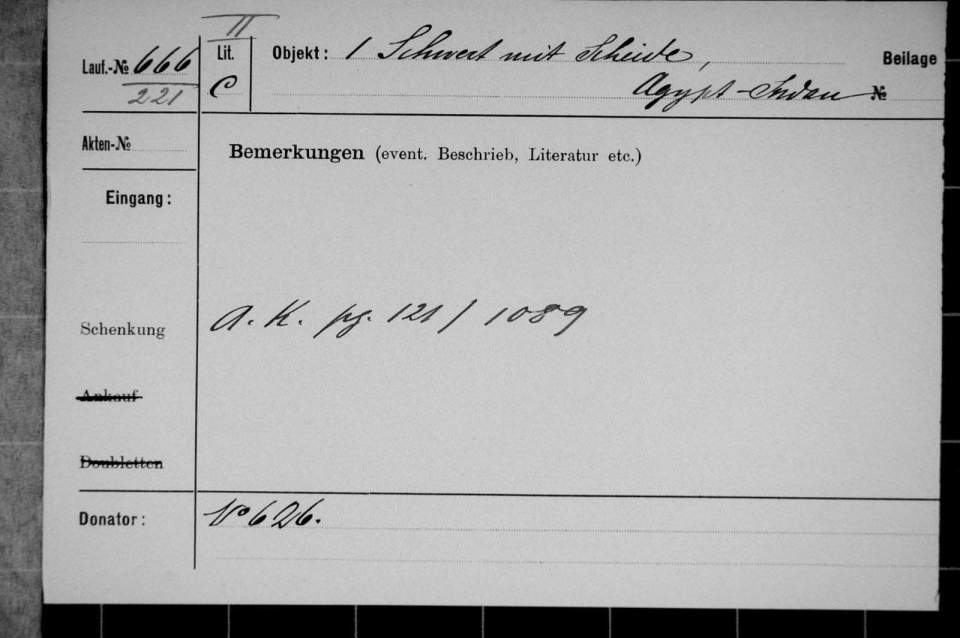 II
Lauf.-No 666 Lit. Objekt: 1 Schwert mit Scheide, Beilage
221 C Ägypt-Sudan No
Akten-No
Bemerkungen (event. Beschrieb, Literatur etc.)
Eingang:
Schenkung A. K. pg. 121 / 1089
Ankauf
Doubletten
Donator: No 626.